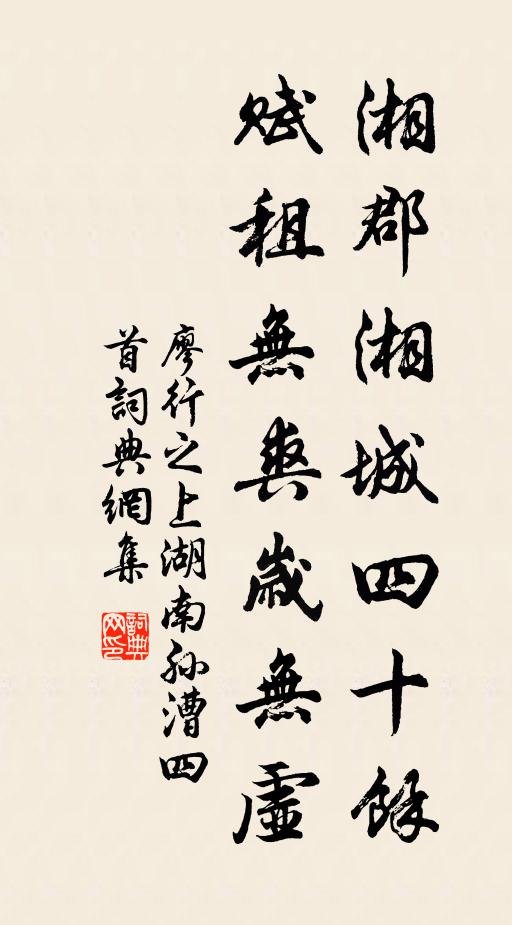 湘郡湘城四十餘
賦租無爽歲無虛
廖行之上湖南孫漕四
首詞典網集
詞典
网印